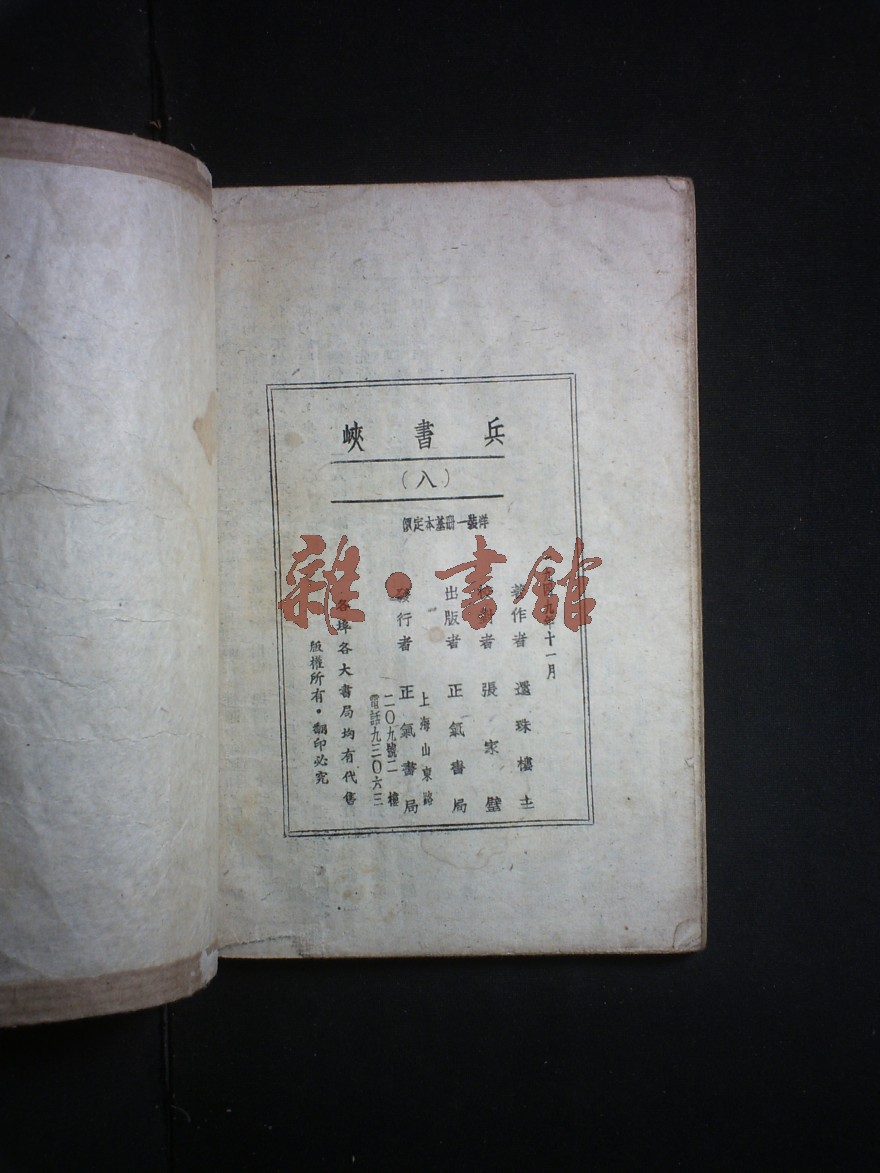 兵書峽
(八)
洋裝一冊基本定價
九年十一月
著作者 還珠樓主
者 張家璧
出版者 正氣書局
發行者 正氣書局
上海山東路
二〇九號二樓
電話九三〇六三
各埠各大書局均有代售
版權所有·翻印必究
雜·書館